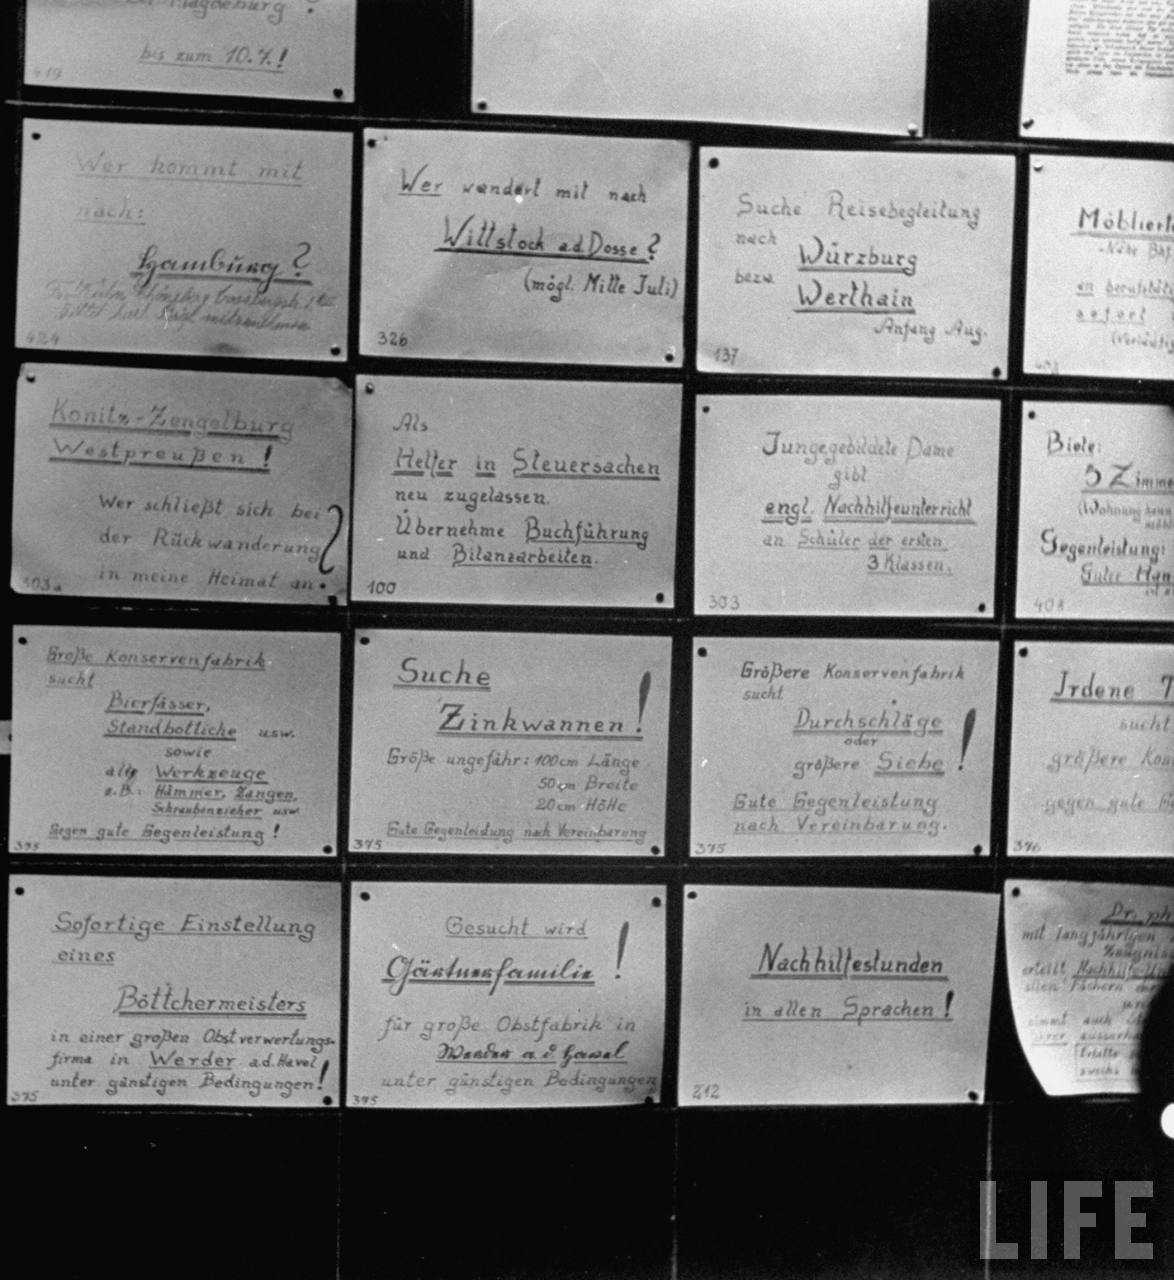 Magdeburg ?
bis zum 10.7.!
419
Wer kommt mit
nach:
Hamburg?
424
Wer wandert mit nach
Wittstock a.d. Dosse?
(mögl. Mitte Juli)
326
Suche Reisebegleitung
nach
Würzburg
bezw.
Werthain
Anfang Aug.
137
en
sofort
Konitz-Zengelburg
Westpreußen!
Wer schließt sich bei
der Rückwanderung
in meine Heimat an?
103a
Als
Helfer in Steuersachen
neu zugelassen.
Übernehme Buchführung
und Bilanzarbeiten.
100
Jungegebildete Dame
gibt
engl. Nachhilfeunterricht
an Schüler der ersten
3 Klassen.
303
Biete:
5 Zimme
(Wohnung kann
Gegenleistung:
Guter
408
Große Konservenfabrik
sucht
Bierfässer,
Standbottiche usw.
sowie
alle Werkzeuge
z.B.: Hämmer, Zangen,
Schraubenzieher usw.
Gegen gute Gegenleistung!
375
Suche
Zinkwannen!
Größe ungefähr: 100cm Länge
50cm Breite
20cm Höhe
Gute Gegenleistung nach Vereinbarung
375
Größere Konservenfabrik
sucht
Durchschläge
oder
größere Siebe!
Gute Gegenleistung
nach Vereinbarung.
375
Irdene T
sucht
größere Kon
gegen gute
376
Sofortige Einstellung
eines
Böttchermeisters
in einer großen Obstverwertungs-
firma in Werder a.d. Havel
unter günstigen Bedingungen!
375
Gesucht wird
Gärtnerfamilie!
für große Obstfabrik in
Werder a d Havel
unter günstigen Bedingungen
375
Nachhilfestunden
in allen Sprachen!
212
Dr. ph
mit langjährigen
Zeugnis
erteilt Nachhilfe
allen Fächern
nimmt auch
LIFE